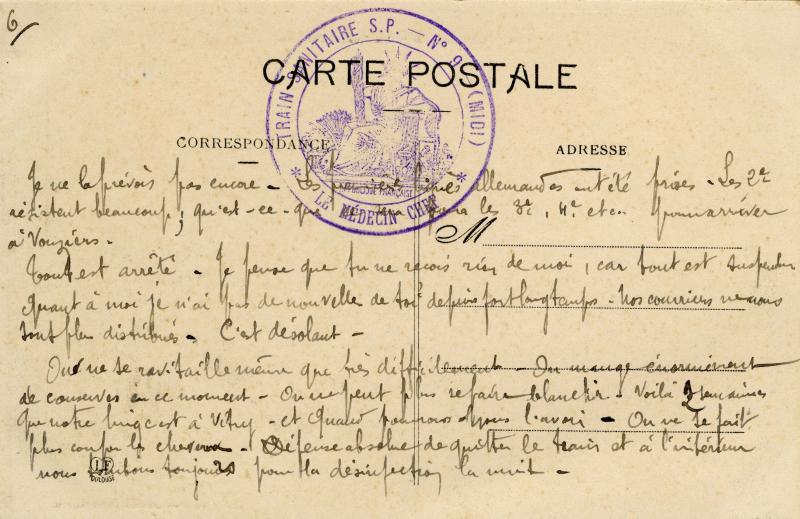 6
TRAIN SANITAIRE S.P. — N° 9 (MIDI)
CARTE POSTALE
CORRESPONDANCE
ADRESSE
Je ne la prévois pas encore – Les premières lignes allemandes ont été prises – Les 2e
résistent beaucoup ; qu'est-ce-que sera pour les 3e, 4e et pour arriver
à Vouziers.
LE MÉDECIN CHEF
M
Tout est arrêté – Je pense que tu ne reçois rien de moi, car tout est suspendu
Quant à moi je n'ai pas de nouvelle de toi depuis fort longtemps – Nos courriers ne nous
sont plus distribués – C'est désolant –
On ne se ravitaille même que très difficilement – On mange énormément
de conserves en ce moment – On ne peut plus se faire blanchir – Voilà 3 semaines
que notre linge est à Vitry – et Quand pourrons-nous l'avoir – On ne se fait
plus couper les cheveux – Défense absolue de quitter le train et à l'intérieur
nous tombons toujours pour la désinfection la nuit –
TOULOUSE